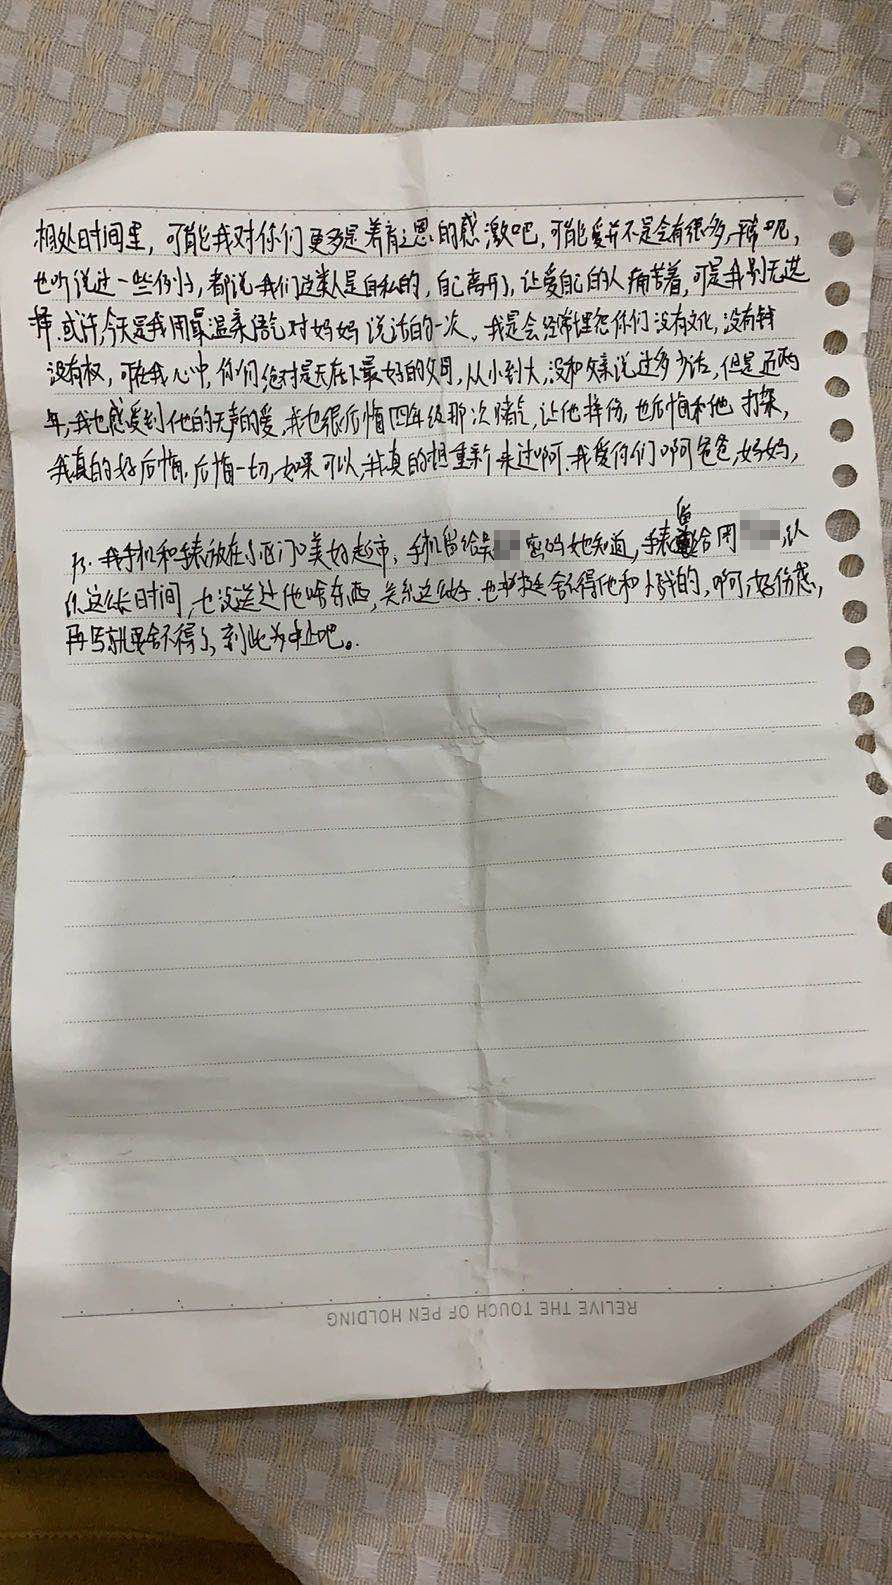 相处时间里，可能我对你们更多是养育之恩的感激吧，可能爱并不是会有很多，
也听说过一些例子，都说我们这类人是自私的，自己离开了，让爱自己的人痛苦着，可是我别无选
择．或许，今天是我用最温柔语气对妈妈说话的一次。我是会经常埋怨你们没有文化，没有钱
没有权，可在我心中，你们绝对是天底下最好的父母，从小到大，没和父亲说过多少话，但是近两
年，我也感受到他的无声的爱，我也很后悔四年级那次赌气，让他摔伤，也后悔和他打架，
我真的好后悔．后悔一切，如果可以，我真的想重新来过啊．我爱你们啊爸爸，妈妈，
ps．我手机和手表放在小西门口美好超市，手机留给吴 密码她知道，手表留给周 ，认
识这么长时间，也没送过他啥东西，关系这么好．也挺舍不得他和 的，啊，好伤感，
再写就要舍不得了，到此为止吧。
RELIVE THE TOUCH OF PEN HOLDING